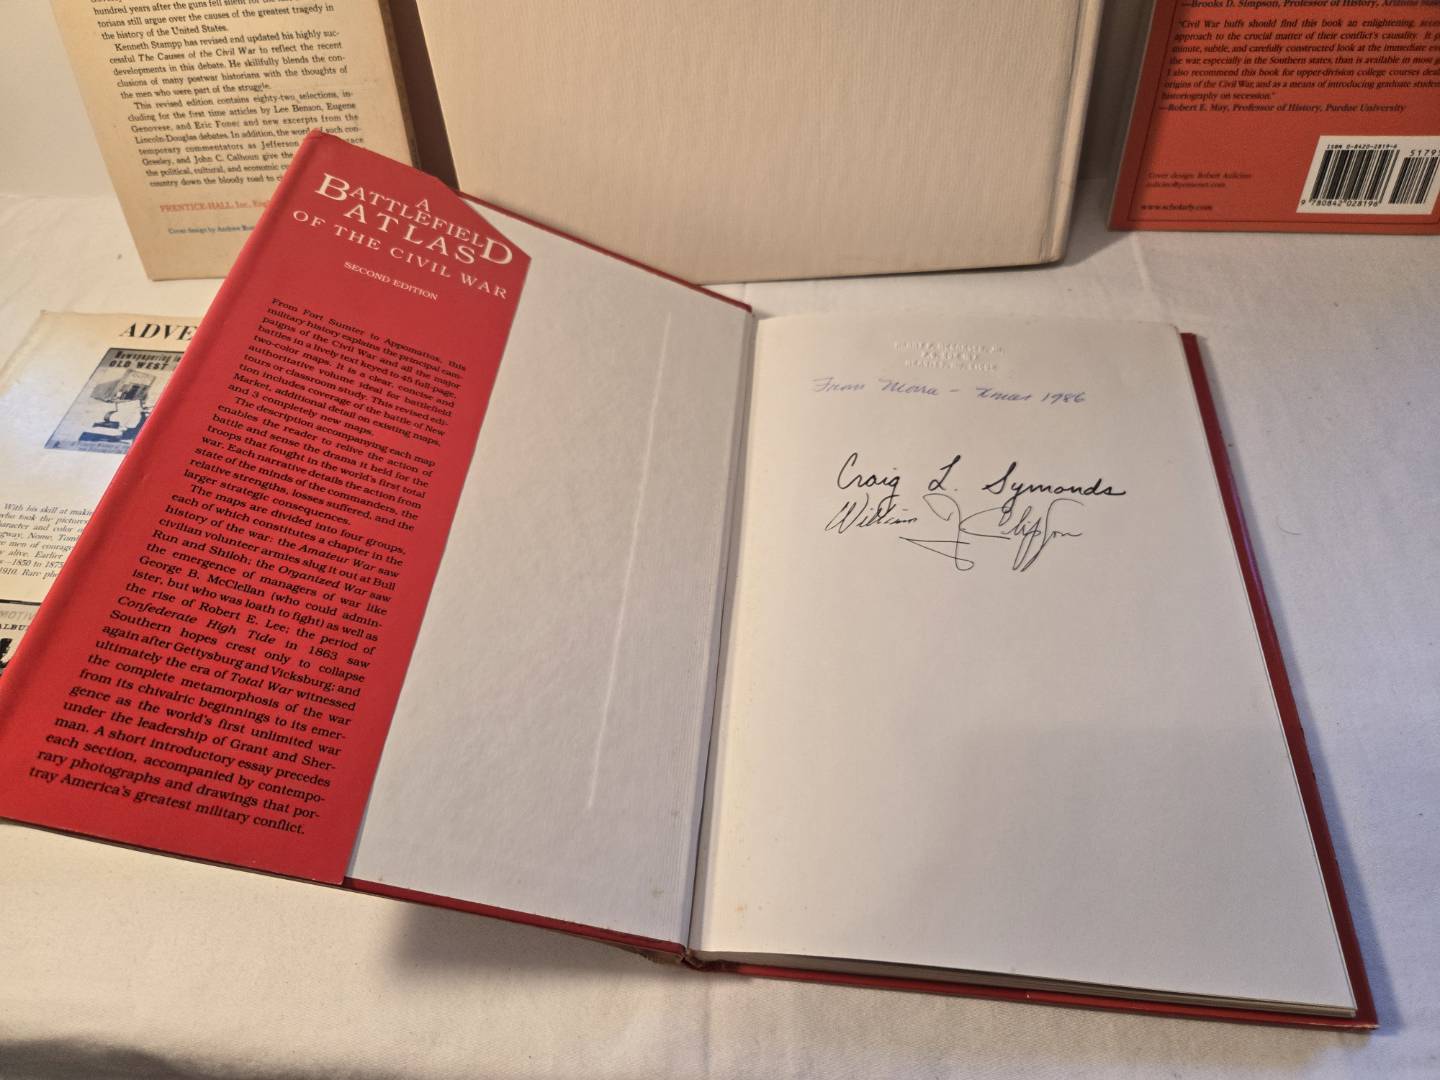 hundred years after the guns fell silent for the last
torians still argue over the causes of the greatest tragedy in
the history of the United States.
Kenneth Stampp has revised end updated his highly suc-
cessful The Causes of the Civil War to reflect the recent
developments in this debate. He skillfully blends the con-
clusions of many postwar historians with the thoughts of
the men who were part of the struggle.
This revised edition contains eighty-two selections, in-
cluding for the first time articles by Lee Benson, Eugene
Genovese, and Eric Foner and new excerpts from the
Lincoln-Douglas debates. In addition, the word of such con-
temporary commentators as Jefferson
Greeley, and John C. Calhoun give the
the political, cultural, and economic
country down the bloody road to
PRENTICE-HALL, Inc., Engl
Cover design by Andrew
ADVE
Newspapering in
OLD WEST
With his skill at makin
who took the pictures
character and color
gway, Nome,
men of courage
alive. Earlier
—1850 to 1875
1910. Rare
A
BATTLEFIELD
ATLAS
OF THE CIVIL WAR
SECOND EDITION
From Fort Sumter to Appomattox, this
military history explains the principal cam-
paigns of the Civil War and all the major
battles in a lively text keyed to 45 full-page,
two-color maps. It is a clear, concise and
authoritative volume ideal for battlefield
tours or classroom study. This revised edi-
tion includes coverage of the battle of New
Market, additional detail on existing maps,
and 3 completely new maps.
The description accompanying each map
enables the reader to relive the action of
battle and sense the drama it held for the
troops that fought in the world's first total
war. Each narrative details the action from
state of the minds of the commanders, the
relative strengths, losses suffered, and the
larger strategic consequences.
The maps are divided into four groups,
each of which constitutes a chapter in the
history of the war: the Amateur War saw
civilian volunteer armies slug it out at Bull
Run and Shiloh; the Organized War saw
the emergence of managers of war like
George B. McClellan (who could admin-
ister, but who was loath to fight) as well as
the rise of Robert E. Lee; the period of
Confederate High Tide in 1863 saw
Southern hopes crest only to collapse
again after Gettysburg and Vicksburg; and
ultimately the era of Total War witnessed
the complete metamorphosis of the war
from its chivalric beginnings to its emer-
gence as the world's first unlimited war
under the leadership of Grant and Sher-
man. A short introductory essay precedes
each section, accompanied by contempo-
rary photographs and drawings that por-
tray America's greatest military conflict.
From Morra – Xmas 1986
Craig L. Symonds
William J. Clipson
—Brooks D. Simpson, Professor of History, Arizona
"Civil War buffs should find this book an enlightening,
approach to the crucial matter of their conflict's causality. It
minute, subtle, and carefully constructed look at the immediate
the war, especially in the Southern states, than is available in most
I also recommend this book for upper-division college courses
origins of the Civil War, and as a means of introducing graduate
historiography on secession."
—Robert E. May, Professor of History, Purdue University
Cover design: Robert Aulicino
aulicino@primenet.com
www.scholarly.com
ISBN 0-8420-2819-6
5179
9 780842 028196